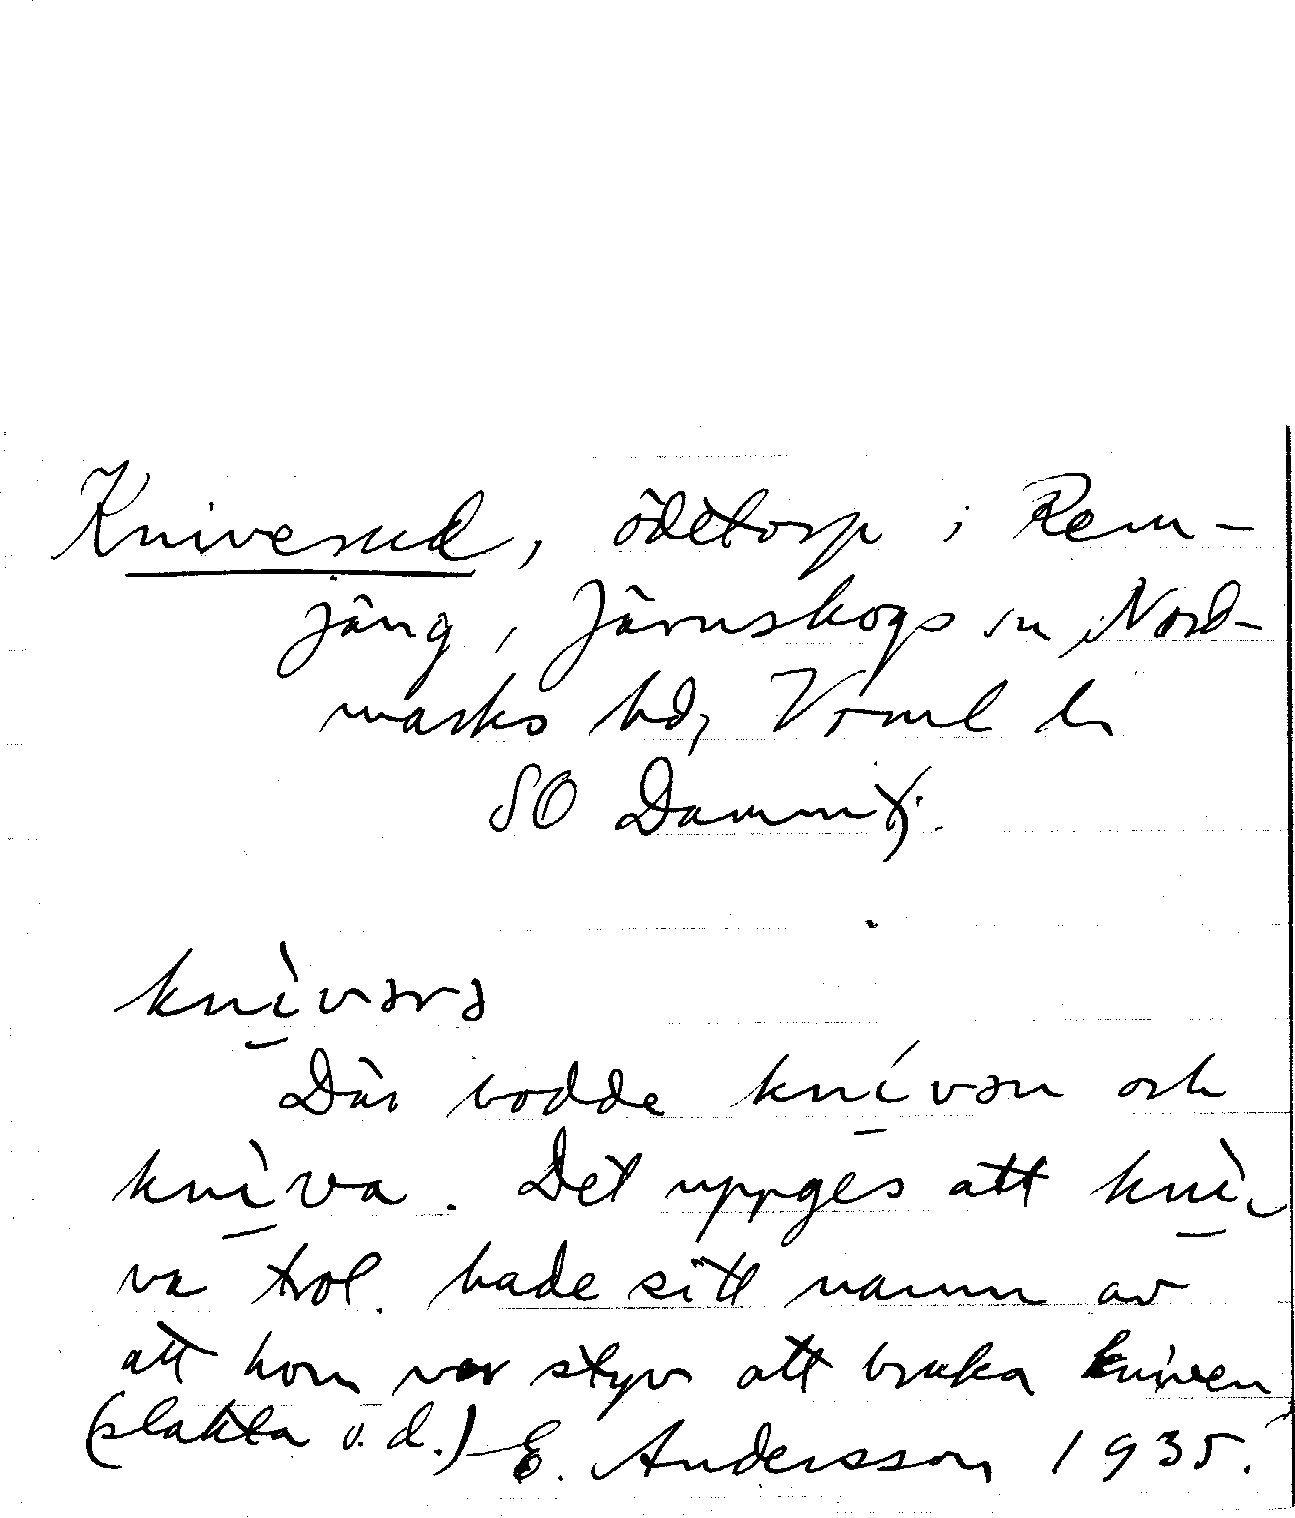 Kniverud, ödetorp i Rem-
jäng, Järnskogs sn Nord-
marks hd, Vrml ln
SO Damm
knìvərə
Där bodde knívən och
knìva. Det uppges att knì-
va trol. hade sitt namn av
att hon var styv att bruka kniven
(slakta o.d.) E. Andersson 1935.